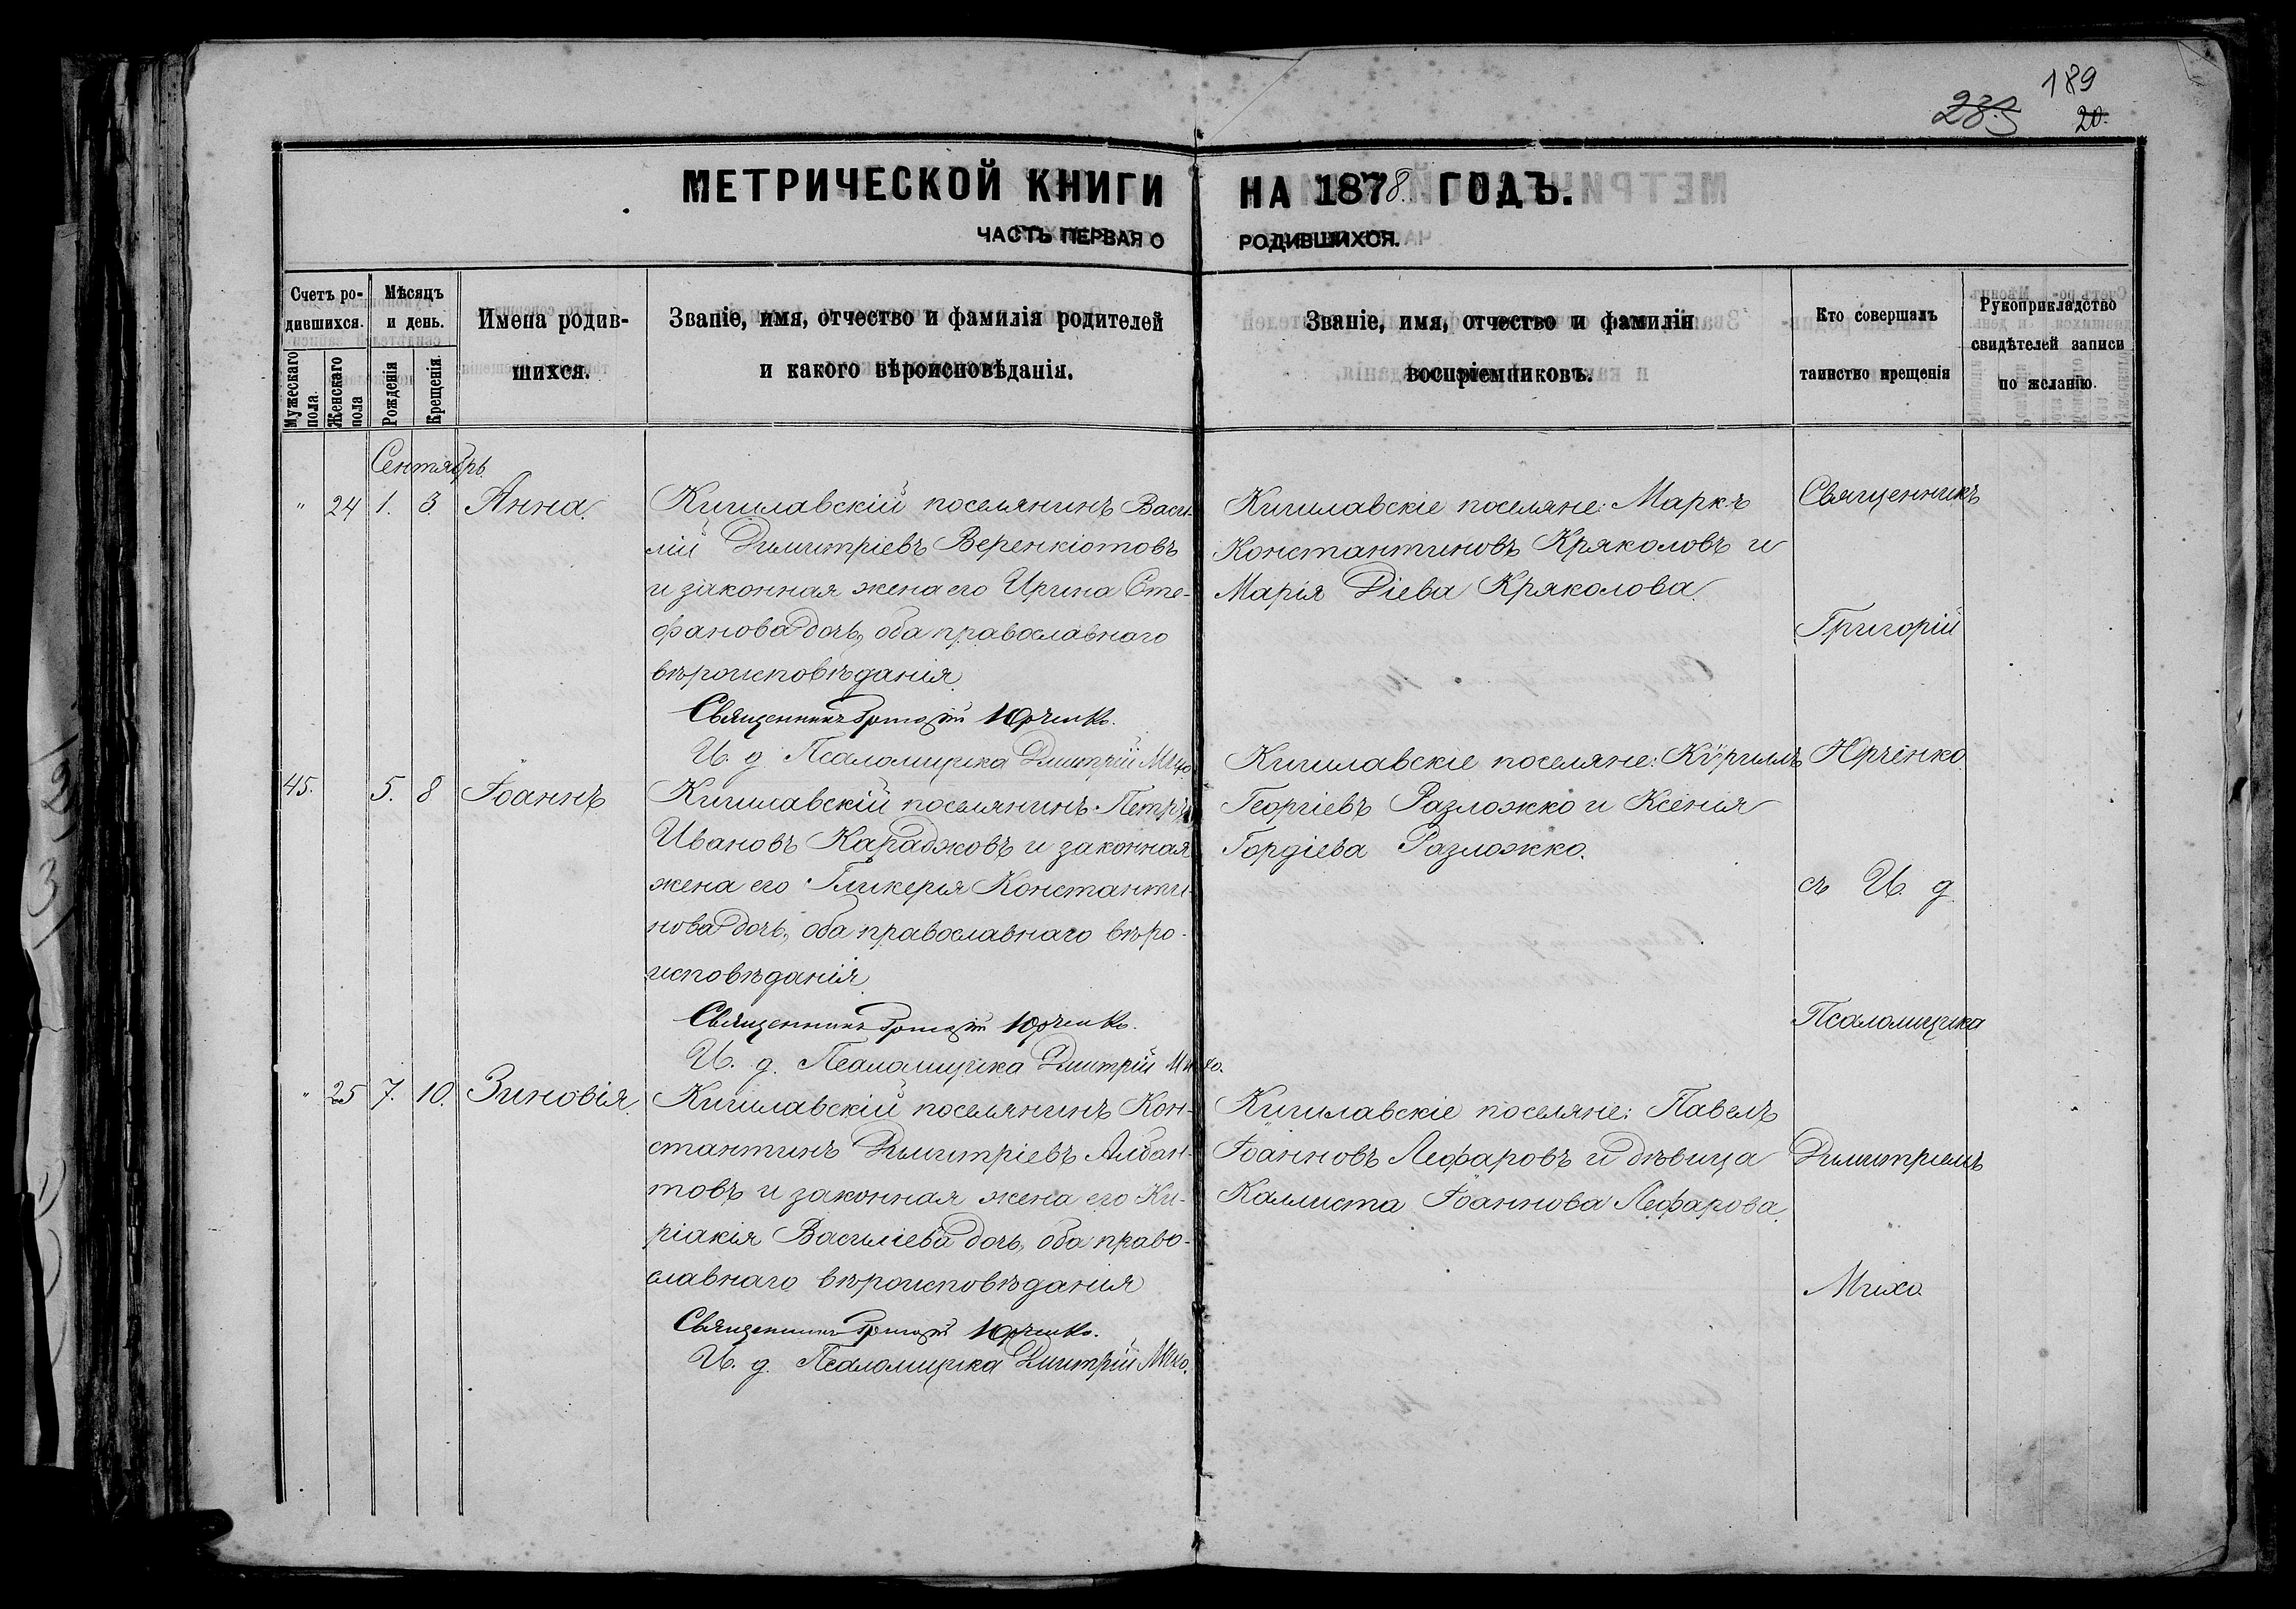 189
20.
МЕТРИЧЕСКОЙ КНИГИ НА 1878 ГОДЪ.
ЧАСТЬ ПЕРВАЯ О РОДИВШИХСЯ.
Счетъ родившихся.
Мужескаго пола.
Женскаго пола
Мѣсяцъ и день.
Рожденія
Крещенія
Имена родившихся.
Званіе, имя, отчество и фамилія родителей
и какого вѣроисповѣданія.
Званіе, имя, отчество и фамилія
воспріемниковъ.
Кто совершалъ
таинство крещенія
Рукоприкладство
свидѣтелей записи
по желанію.
Сентябрь.
" 24 1. 3. Анна.
Кишлавскій поселянинъ Васи-
лій Димитріевъ Веренкіотовъ
и законная жена его Ирина Сте-
фанова дочь, оба православнаго
вѣроисповѣданія.
Священникъ Григорій Юрченко.
И. д. Псаломщика Димитрій Михо
Кишлавскіе поселяне: Маркъ
Константиновъ Кряколовъ и
Марія Діева Кряколова.
45. 5. 8 Іоаннъ
Кишлавскій поселянинъ Петръ
Ивановъ Караджовъ и законная
жена его Гликерія Константи-
нова дочь, оба православнаго вѣро-
исповѣданія.
Священникъ Григорій Юрченко.
И. д. Псаломщика Димитрій Михо.
Кишлавскіе поселяне: Кѵриллъ
Георгіевъ Разложко и Ксенія
Гордіева Разложко.
" 25 7. 10. Зиновія.
Кишлавскій поселянинъ Кон-
стантинъ Димитріевъ Албан-
товъ и законная жена его Ки-
ріакія Василіева дочь, оба право-
славнаго вѣроисповѣданія
Священникъ Григорій Юрченко.
И. д. Псаломщика Димитрій Михо.
Кишлавскіе поселяне: Павелъ
Іоанновъ Лефаровъ и дѣвица
Каллиста Іоаннова Лефарова.
Священникъ
Григорій
Юрченко
съ И. д.
Псаломщика
Димитріемъ
Михо.